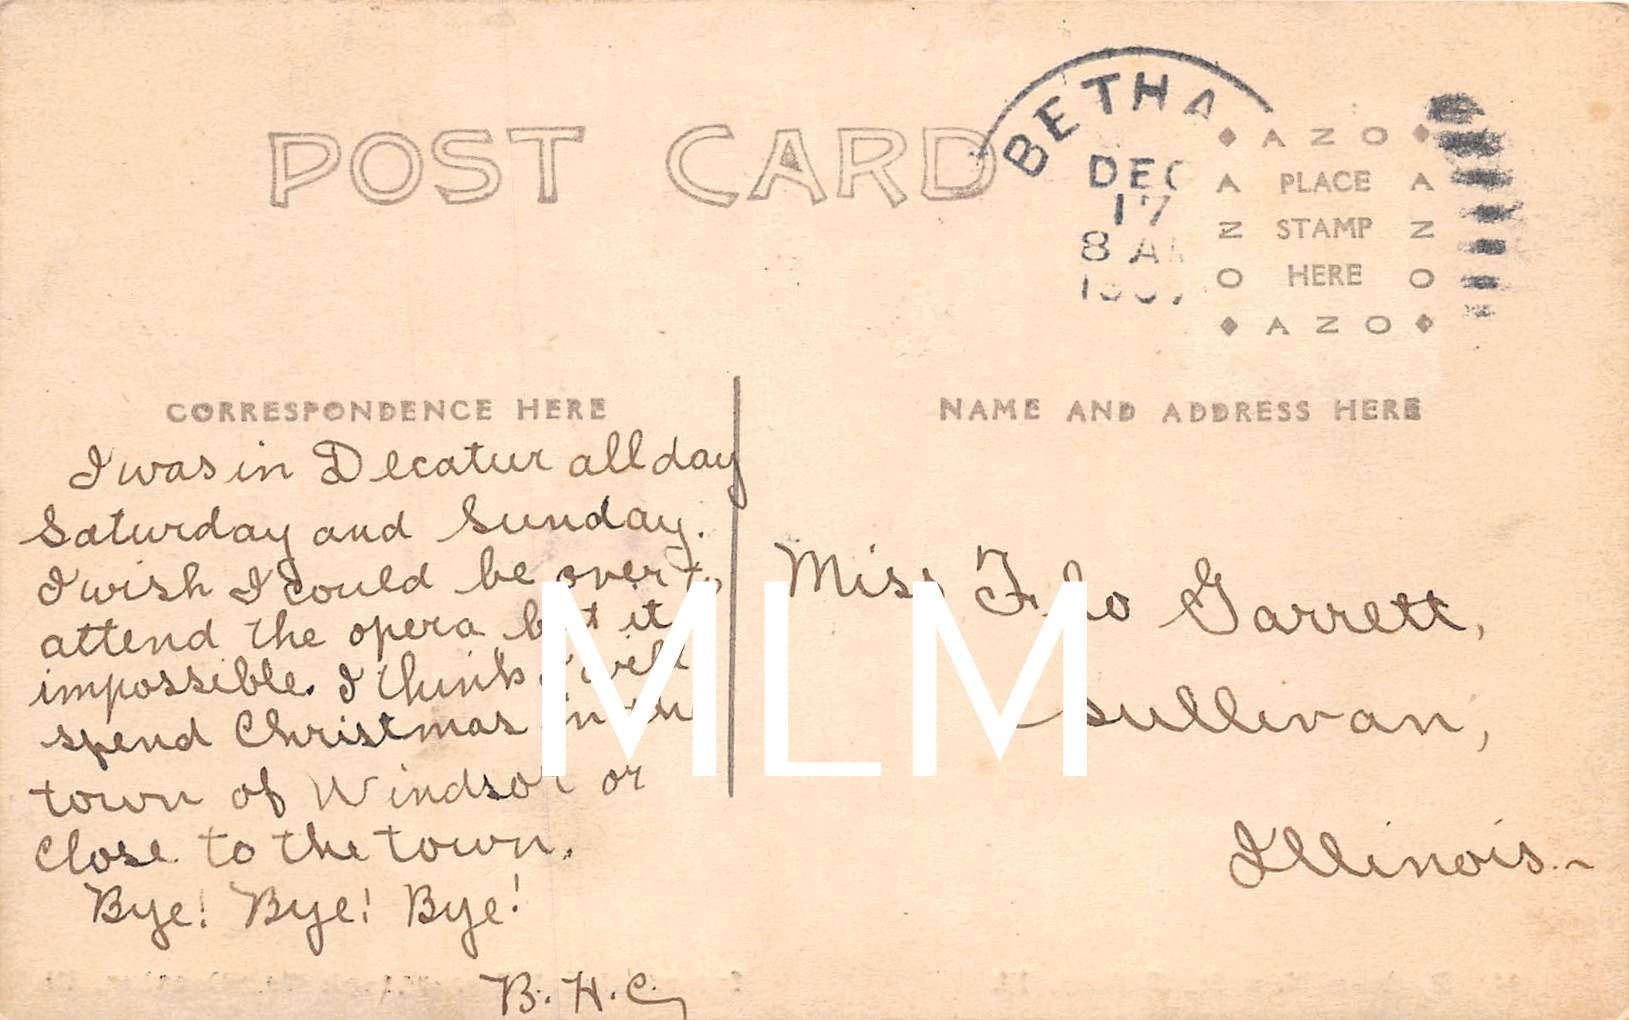 POST CARD
BETHA
DEC
17
8 AM
AZO
PLACE
STAMP
HERE
AZO
AZO
AZO
CORRESPONDENCE HERE
I was in Decatur all day
Saturday and Sunday.
I wish I could be over to
attend the opera but it
impossible. I think I will
spend Christmas in the
town of Windsor or
close to the town.
Bye! Bye! Bye!
B. H. C.
NAME AND ADDRESS HERE
Miss Flo Garrett,
Sullivan,
Illinois.
MLM